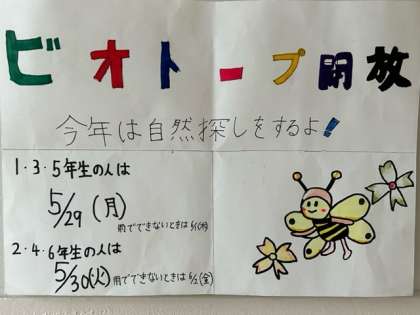 ビオトープ開放
今年は自然探しをするよ!
1・3・5年生の人は
5/29 (月)
雨でできないときは6/1(木)
2・4・6年生の人は
5/30(火)
雨でできないときは6/2(金)